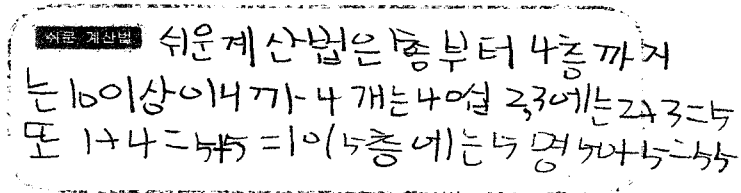 쉬운 계산법 쉬운계산법은 1층부터 4층까지
는 10이상이니까 4개는 40이고 2,3에는 2+3=5
또 1+4=5+5=10(5층에는 5명 50+5=55